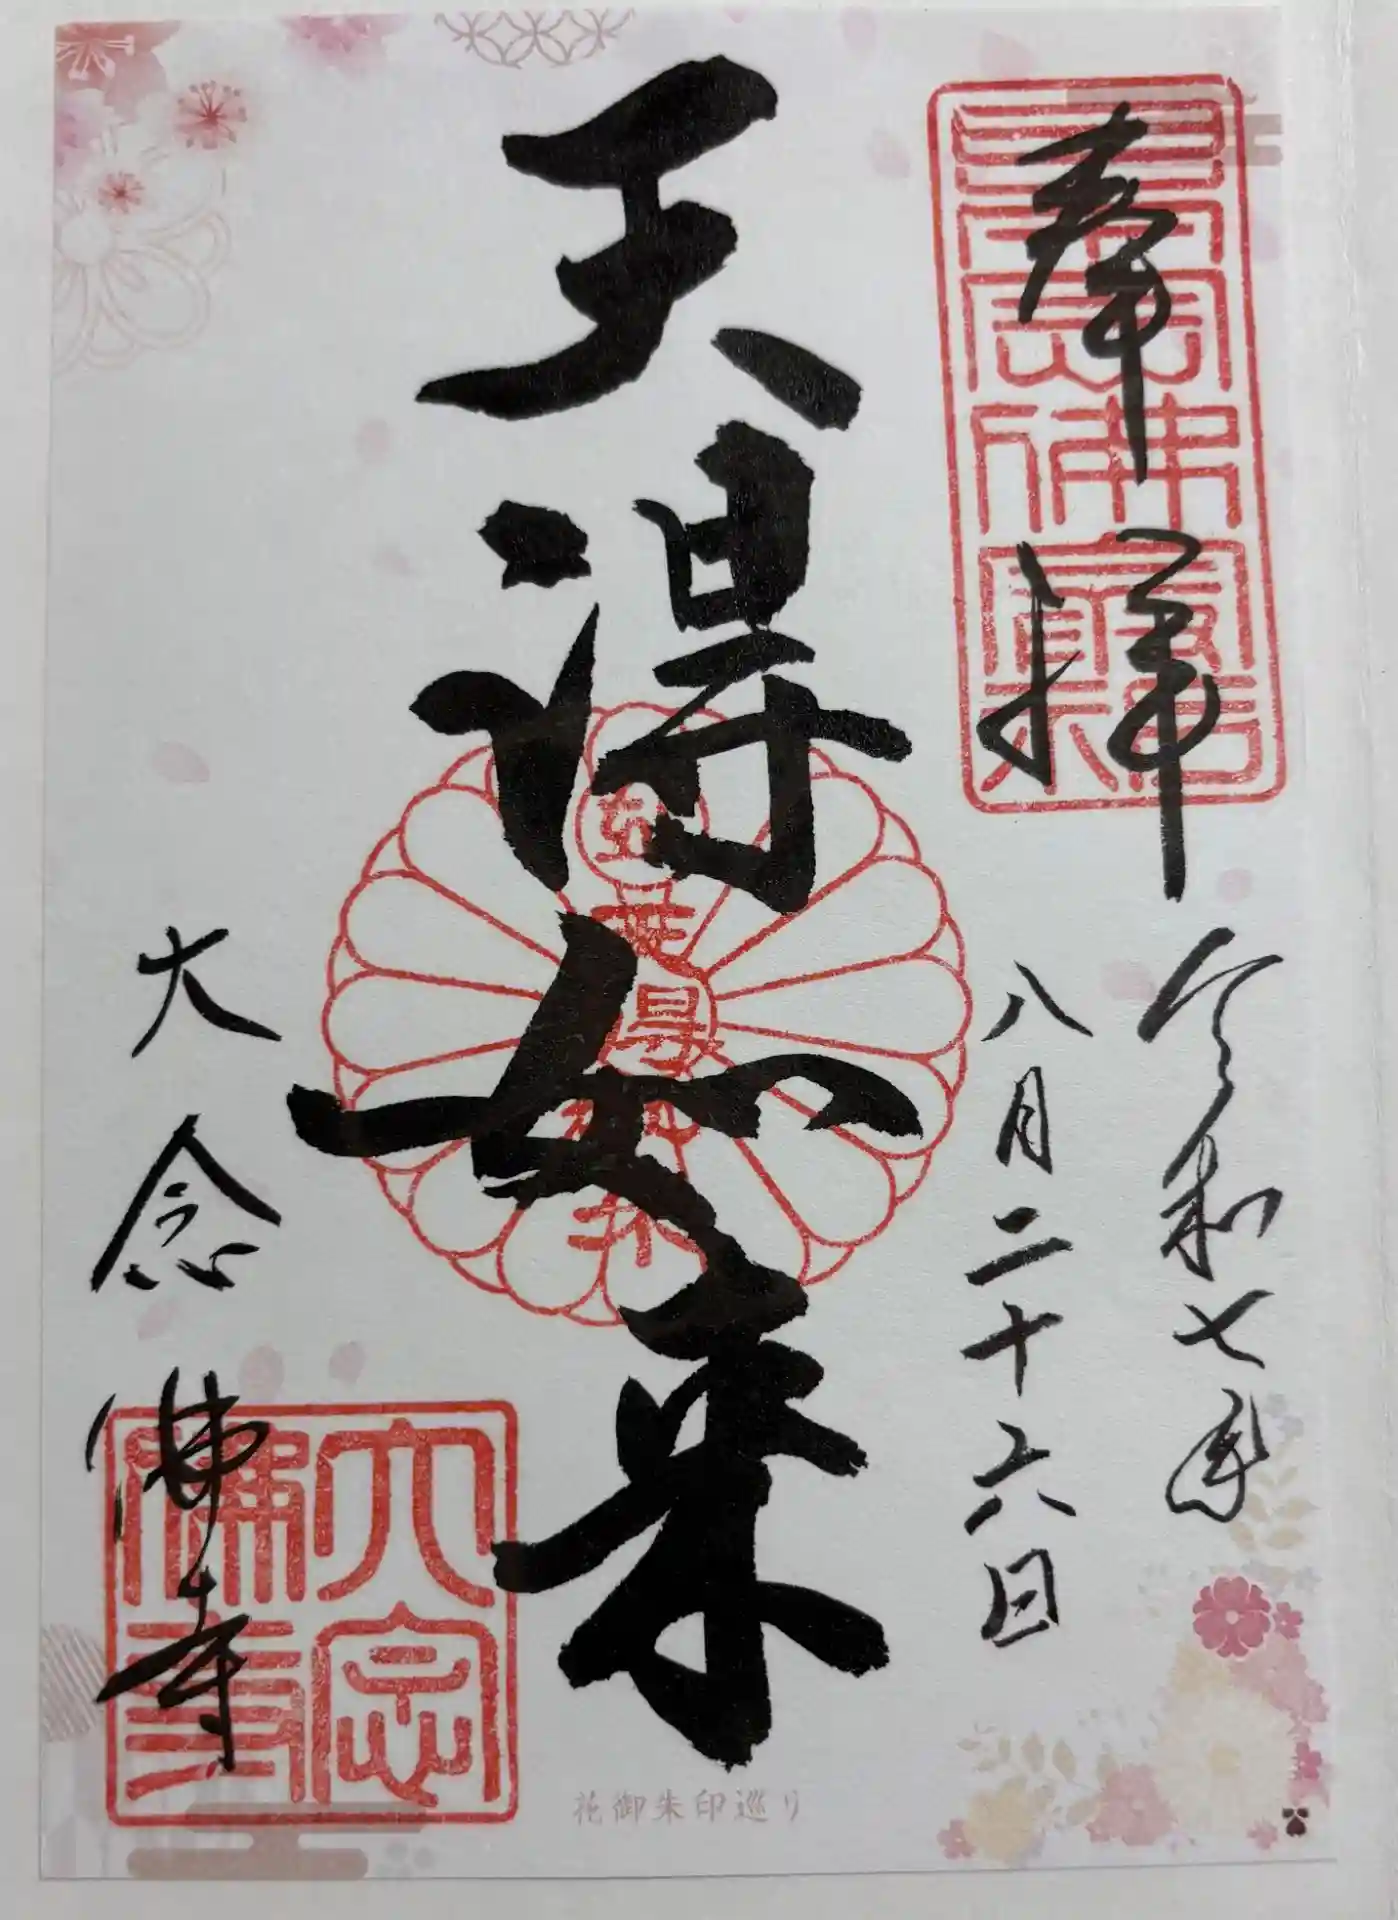 奉拝
令和七年
八月二十六日
天得如来
大念佛寺
大念
佛寺
花御朱印巡り